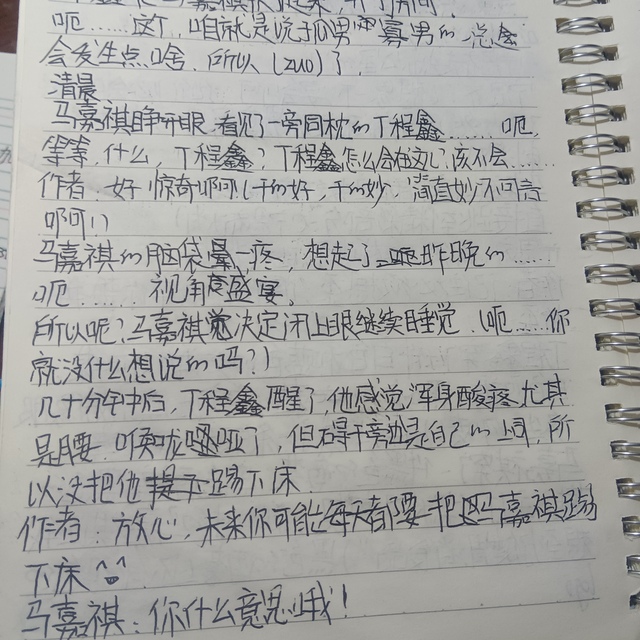 呃……这个，咱就是说孤男寡男的，总会
会发生点啥，所以(zuo)了，
清晨
马嘉祺睁开眼，看见了一旁同枕的丁程鑫……呃，
等等，什么，丁程鑫？丁程鑫怎么会在这儿？该不会……
作者：好惊奇啊！(干的好，干的妙，简直妙不可言
啊啊！)
马嘉祺的脑袋一疼，想起了昨晚的……
呃……视角盛宴。
所以呢？马嘉祺决定闭上眼继续睡觉，(呃……你
就没什么想说的吗？)
几十分钟后，丁程鑫醒了，他感觉浑身酸疼，尤其
是腰，喉咙哑了，但碍于旁边是自己的上司，所
以没把他踢下床
作者：放心，未来你可能每天都要把马嘉祺踢
下床^^
马嘉祺：你什么意思哦！